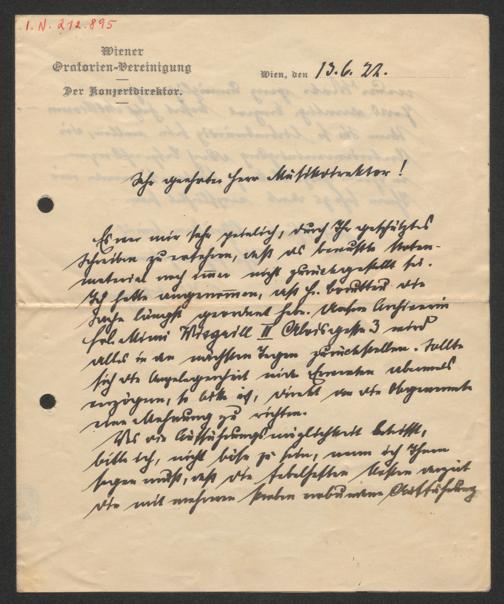 I. N. 212.895
Wiener
Oratorien-Vereinigung
Der Konzertdirektor.
Wien, den 13.6.22.
Sehr geehrter Herr Musikdirektor!
Es war mir sehr peinlich, durch Ihr geschätztes
Schreiben zu erfahren, daß das benützte Noten-
material noch immer nicht zurückgestellt sei.
Ich hatte angenommen, daß H. die
Sache längst geordnet habe. Unsere Archivarin
Frl. Mimi II 3 wird
alles in den nächsten Tagen zurückstellen. Sollte
sich die Angelegenheit wider Erwarten abermals
verzögern, so bitte ich, direkt an die Obgenannte
eine Mahnung zu richten.
Was die Aufführungsmöglichkeit betrifft,
bitte ich, nicht böse zu sein, wenn ich Ihnen
sagen muß, daß die fabelhaften Kosten
die mit mehreren Proben verbundene Aufführung